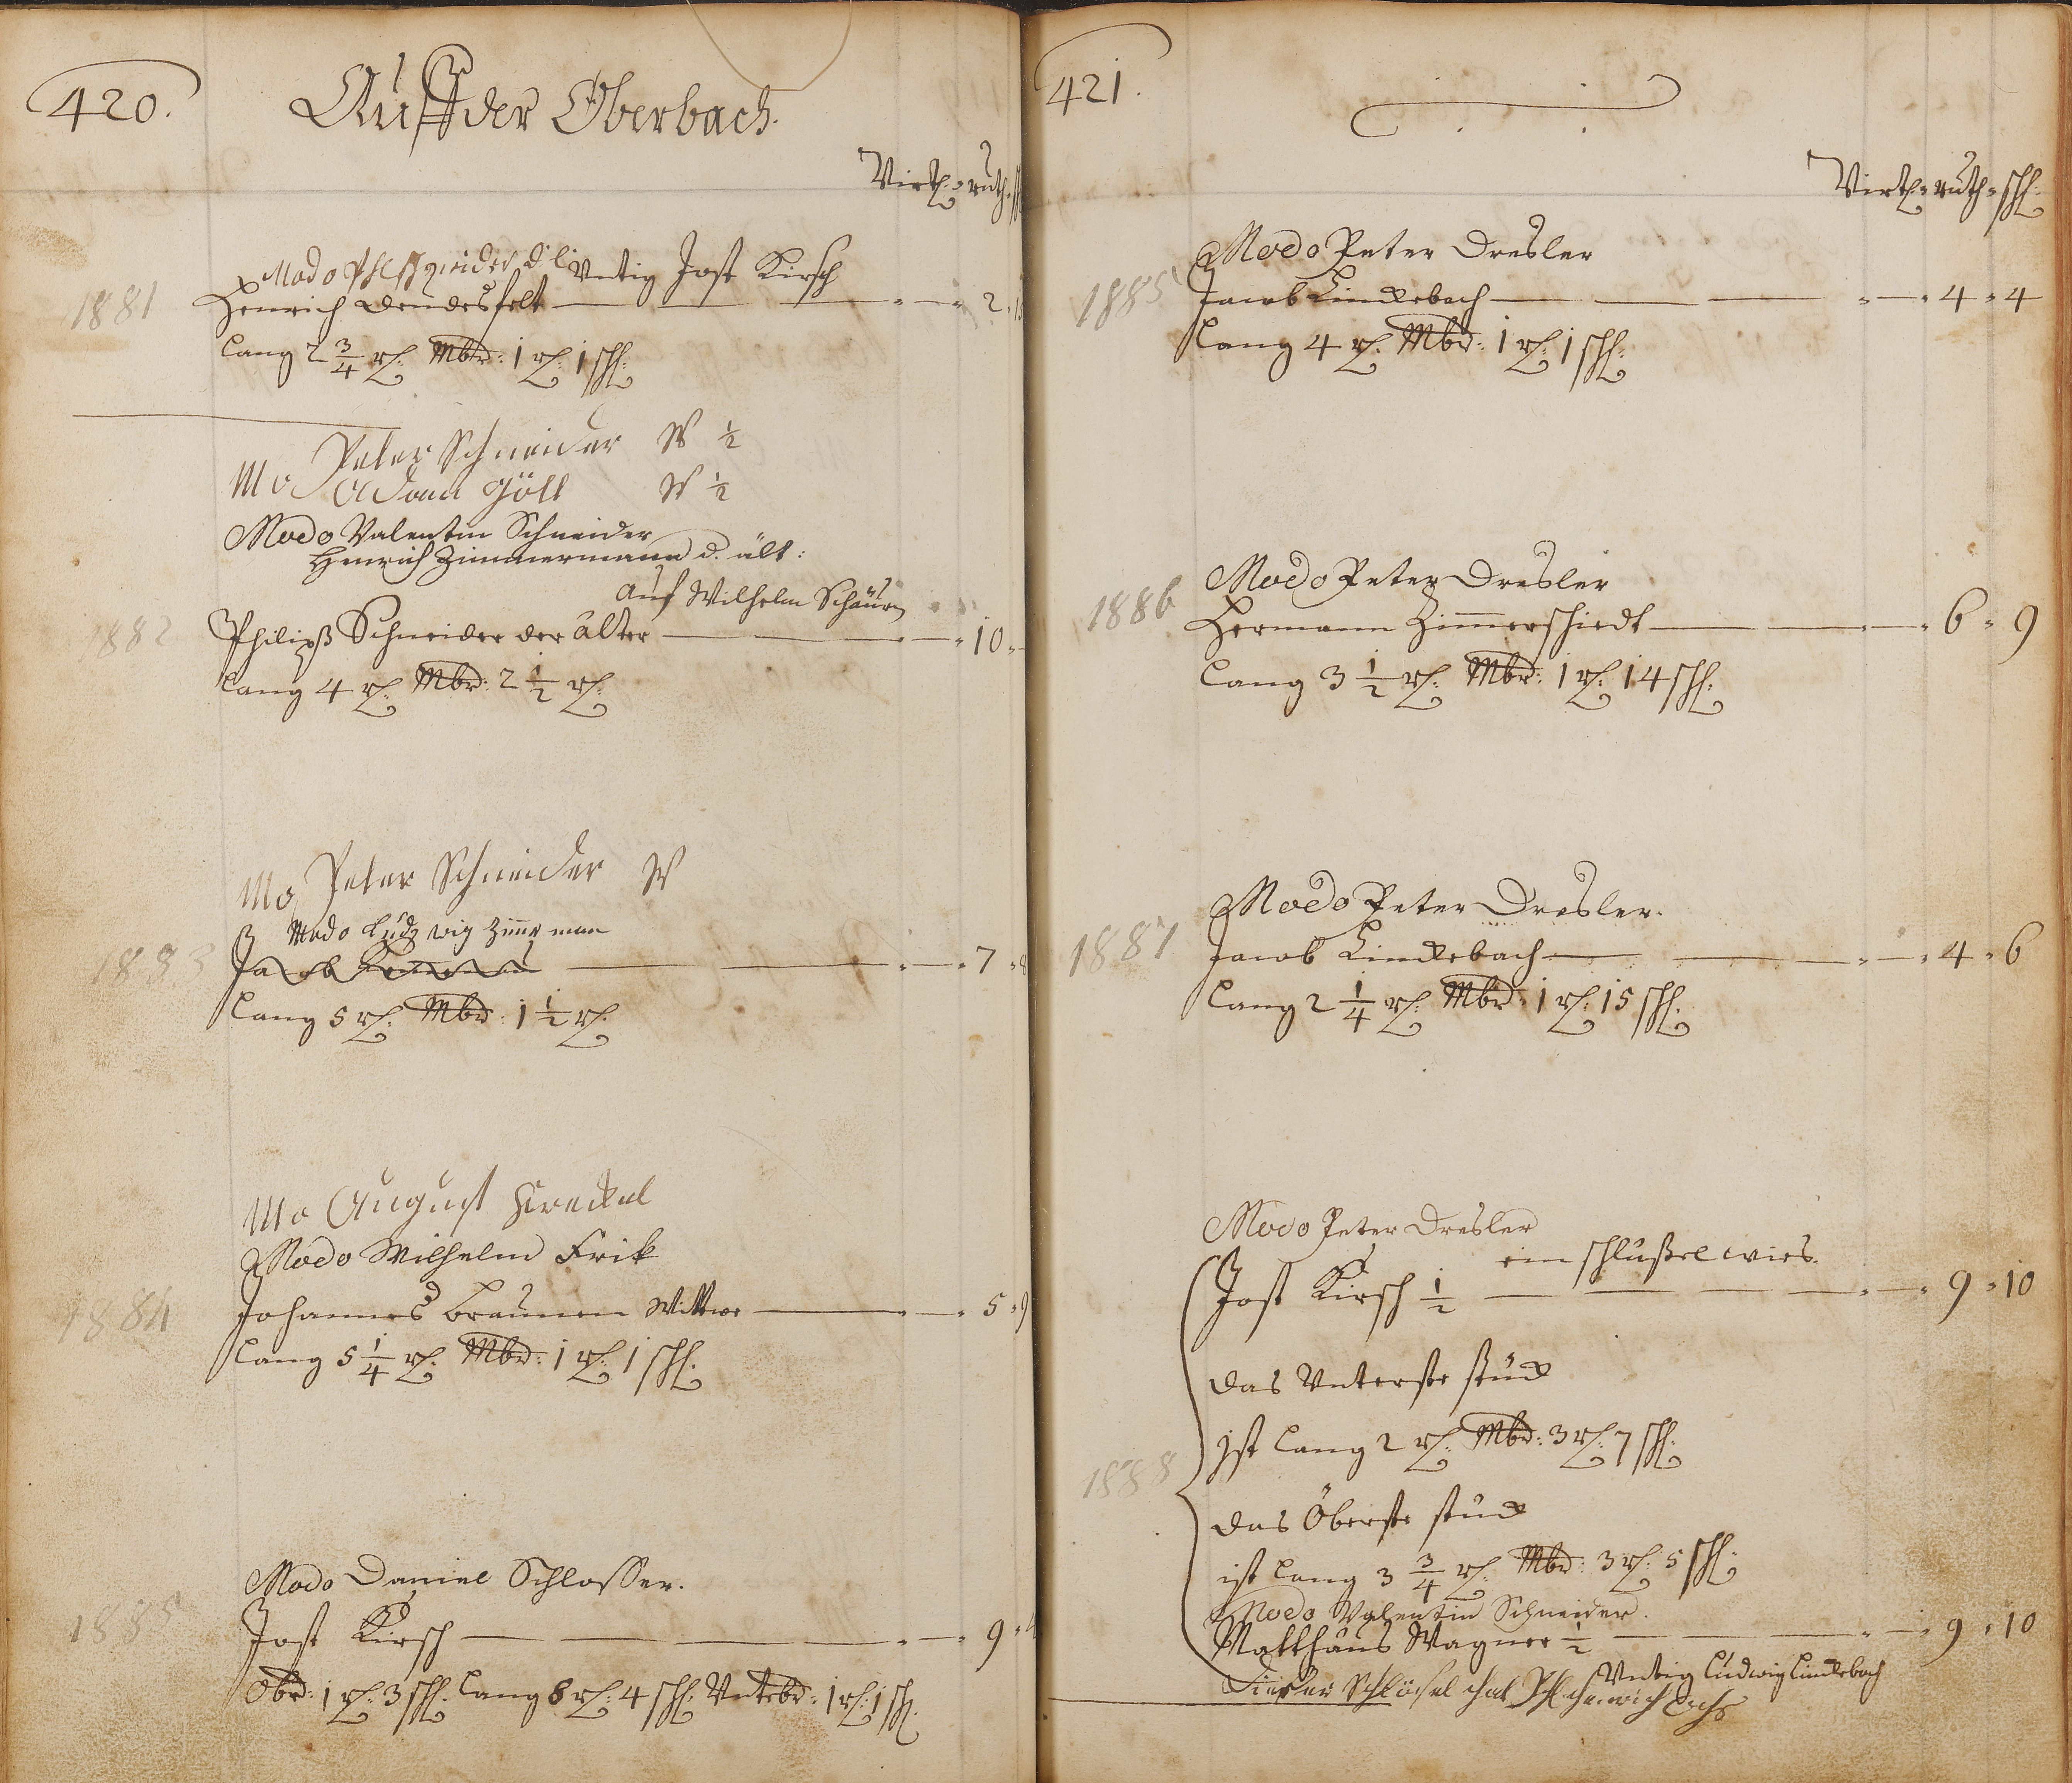 420.
Auff der Oberbach.
Virtl: ruth
Modo Phs Schneider d: l: Untig Jost Kirsch
1881 Henrich Dendesfelt 2
lang 2 3/4 rt: Mbr: 1 rt: 1 sch:
Peter Schneider W 1/2
Mo Adam Göll W 1/2
Modo Valentin Schneider
Henrich Zimmermann d. ält:
auf Wilhelm Schäurn
1882 Philips Schneider der älter 10
lang 4 rt: Mbr: 2 1/2 rt:
Mo Peter Schneider W
Modo Ludwig Zimerman
1883 Jacob 7
lang 5 rt: Mbr: 1 1/2 rt:
Mo August Kreckel
Modo Wilhelm Frik
1884 Johannes Braunen Wittwe 5 9
lang 5 1/4 rt: Mbr: 1 rt: 1 sch:
Modo Daniel Schlosser.
1885 Jost Kirsch 9 4
Obr: 1 rt: 3 sch: lang 8 rt: 4 sch: Untebr: 1 rt: 1 sch:
421.
Virtl: ruth: sch:
Modo Peter Dresler
1885 Jacob Linckebach 4 4
lang 4 rt: Mbr: 1 rt: 1 sch:
Modo Peter Dresler
1886 Hermann Zimmerschiedt 6 9
lang 3 1/2 rt: Mbr: 1 rt: 14 sch:
Modo Peter Dresler.
1887 Jacob Linckebach 4 6
lang 2 1/4 rt: Mbr: 1 rt: 15 sch:
Modo Peter Dresler
ein schlußel wies.
Jost Kirsch 1/2 9 10
das Unterste stück
ist lang 2 rt: Mbr: 3 rt: 7 sch:
1888
das Öberste stück
ist lang 3 3/4 rt: Mbr: 3 rt: 5 sch:
Modo Valentin Schneider.
Matthäus Wagner 1/2 9 10
Untig Ludwig Linckebach
Dieser Schlösel hat Ph Henrich